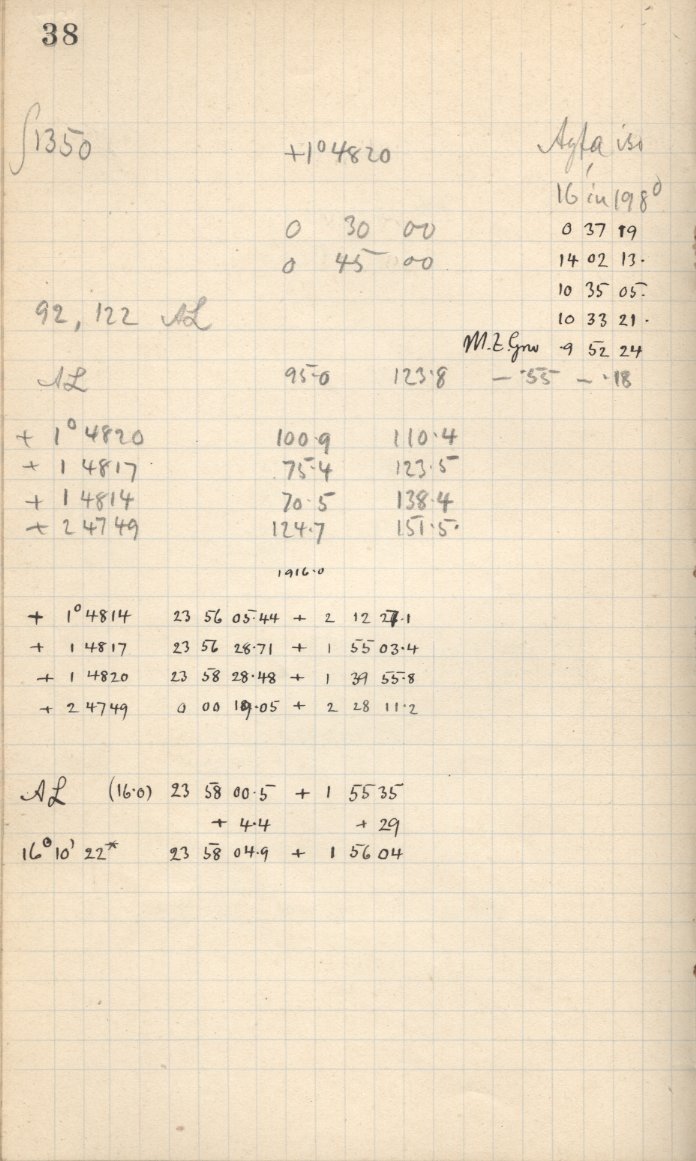 38
∫1350 +1° 4820 Agfa iso
16 in 198°
0 30 00 0 37 19
0 45 00 14 02 13.
10 35 05.
92, 122 AL 10 33 21.
M.Z. Grw 9 52 24
AL 95.0 123.8 - .55 - .18
+ 1° 4820 100.9 110.4
+ 1 4817 75.4 123.5
+ 1 4814 70.5 138.4
+ 2 4749 124.7 151.5.
1916.0
+ 1° 4814 23 56 05.44 + 2 12 .1
+ 1 4817 23 56 28.71 + 1 55 03.4
+ 1 4820 23 58 28.48 + 1 39 55.8
+ 2 4749 0 00 19.05 + 2 28 11.2
AL (16.0) 23 58 00.5 + 1 55 35
+ 4.4 + 29
16° 10' 22* 23 58 04.9 + 1 56 04